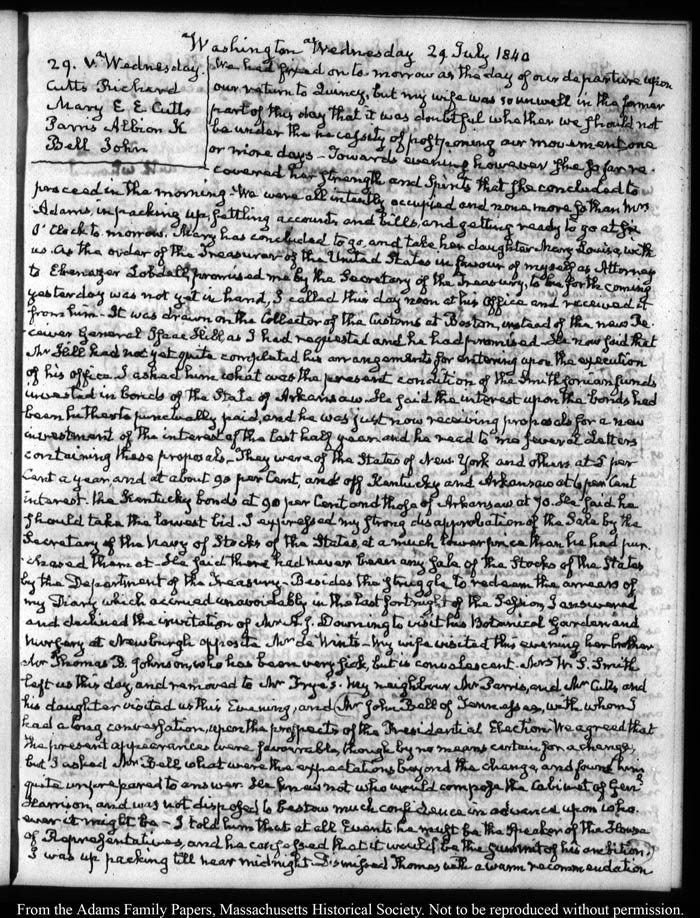 Washington Wednesday 29 July 1840
29. V. Wednesday.
Cutts Richard
Mary E. E. Cutts
Parris Albion K
Bell John
We had fixed on to morrow as the day of our departure upon
our return to Quincy, but my wife was so unwell in the former
part of this day that it was doubtful whether we should not
be under the necessity of postponing our movement one
or more days - Towards evening however she so far re-
covered her strength and spirits that she concluded to
proceed in the morning. We were all intently occupied and none more so than Mrs
Adams, in packing up, settling accounts and bills, and getting ready to go at six
O'Clock to morrow. Mary has concluded to go, and take her daughter Mary Louisa, with
us. As the order of the Treasurer of the United States in favour of myself as Attorney
to Ebenezer Lobdell, promised me by the Secretary of the Treasury, to be forthcoming
yesterday was not yet in hand, I called this day noon at his Office and received it
from him - It was drawn on the Collector of the Customs at Boston, instead of the new Re-
ceiver General Isaac Hill as I had requested and he had promised. He now said that
Mr Hill had not yet quite completed his arrangements for entering upon the execution
of his office. I asked him what was the present condition of the Smithsonian funds
invested in bonds of the State of Arkansaw. He said the interest upon the bonds had
been hitherto punctually paid, and he was just now receiving proposals for a new
investment of the interest of the last half year and he read to me several Letters
containing these proposals - They were of the States of New York and others at 5 per
Cent a year, and at about 90 per Cent, and off Kentucky and Arkansaw at 6 per Cent
interest. the Kentucky bonds at 90 per Cent and those of Arkansaw at 70. He said he
should take the lowest bid. I expressed my strong disapprobation of the Sale by the
Secretary of the Navy of Stocks of the States, at a much lower price than he had pur-
chased them at - He said there had never been any sale of the Stocks of the States
by the Department of the Treasury - Besides the struggle to redeem the arrears of
my Diary which accrued unavoidably in the last fortnight of the Session, I answered
and declined the invitation of Mr A. J. Downing to visit his Botanical Garden and
Nursery at Newburgh opposite Mr de Wints - My wife visited this evening her brother
Mr Thomas B. Johnson, who has been very sick, but is convalescent. Mrs W. S. Smith
left us this day and removed to Mr Frye's. My neighbour Mr Parris, and Mr Cutts and
his daughter visited us this Evening, and Mr John Bell of Tennessee, with whom I
had a long conversation, upon the prospects of the Presidential Election. We agreed that
the present appearances were favourable, though by no means certain, for a change,
but I asked Mr Bell what were the expectations beyond the change, and found him
quite unprepared to answer. He knew not who would compose the Cabinet of Genl
Harrison, and was not disposed to bestow much confidence in advance upon who-
ever it might be - I told him that at all Events he might be the Speaker of the House
of Representatives, and he confessed that it would be the summit of his ambition.
I was up packing till near midnight. Dismissed Thomas with a warm recommendation
From the Adams Family Papers, Massachusetts Historical Society. Not to be reproduced without permission.